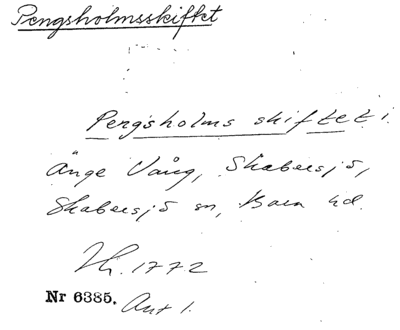 Pengsholmsskiftet
Pengsholms skiftet i
Änge Vång, Skabersjö,
Skabersjö sn, Bara hd.
Lh. 1772
Nr 6385. Ant 1.